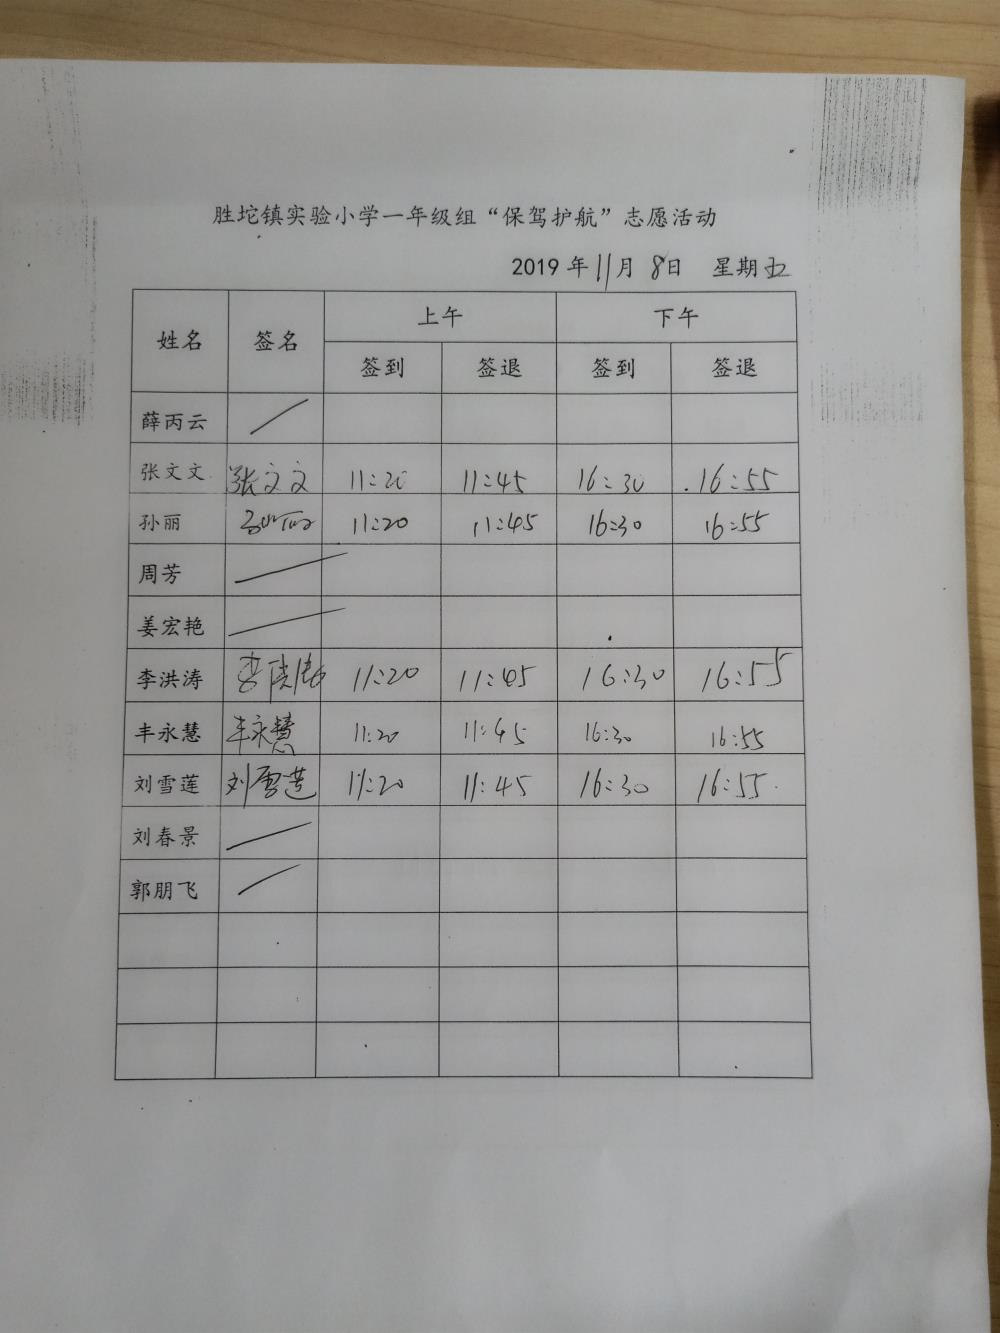 胜坨镇实验小学一年级组“保驾护航”志愿活动
2019年11月8日 星期五
姓名 签名 上午 下午
签到 签退 签到 签退
薛丙云
张文文 张文文 11:20 11:45 16:30 16:55
孙丽 孙丽 11:20 11:45 16:30 16:55
周芳
姜宏艳
李洪涛 李洪涛 11:20 11:45 16:30 16:55
丰永慧 丰永慧 11:20 11:45 16:30 16:55
刘雪莲 刘雪莲 11:20 11:45 16:30 16:55
刘春景
郭朋飞